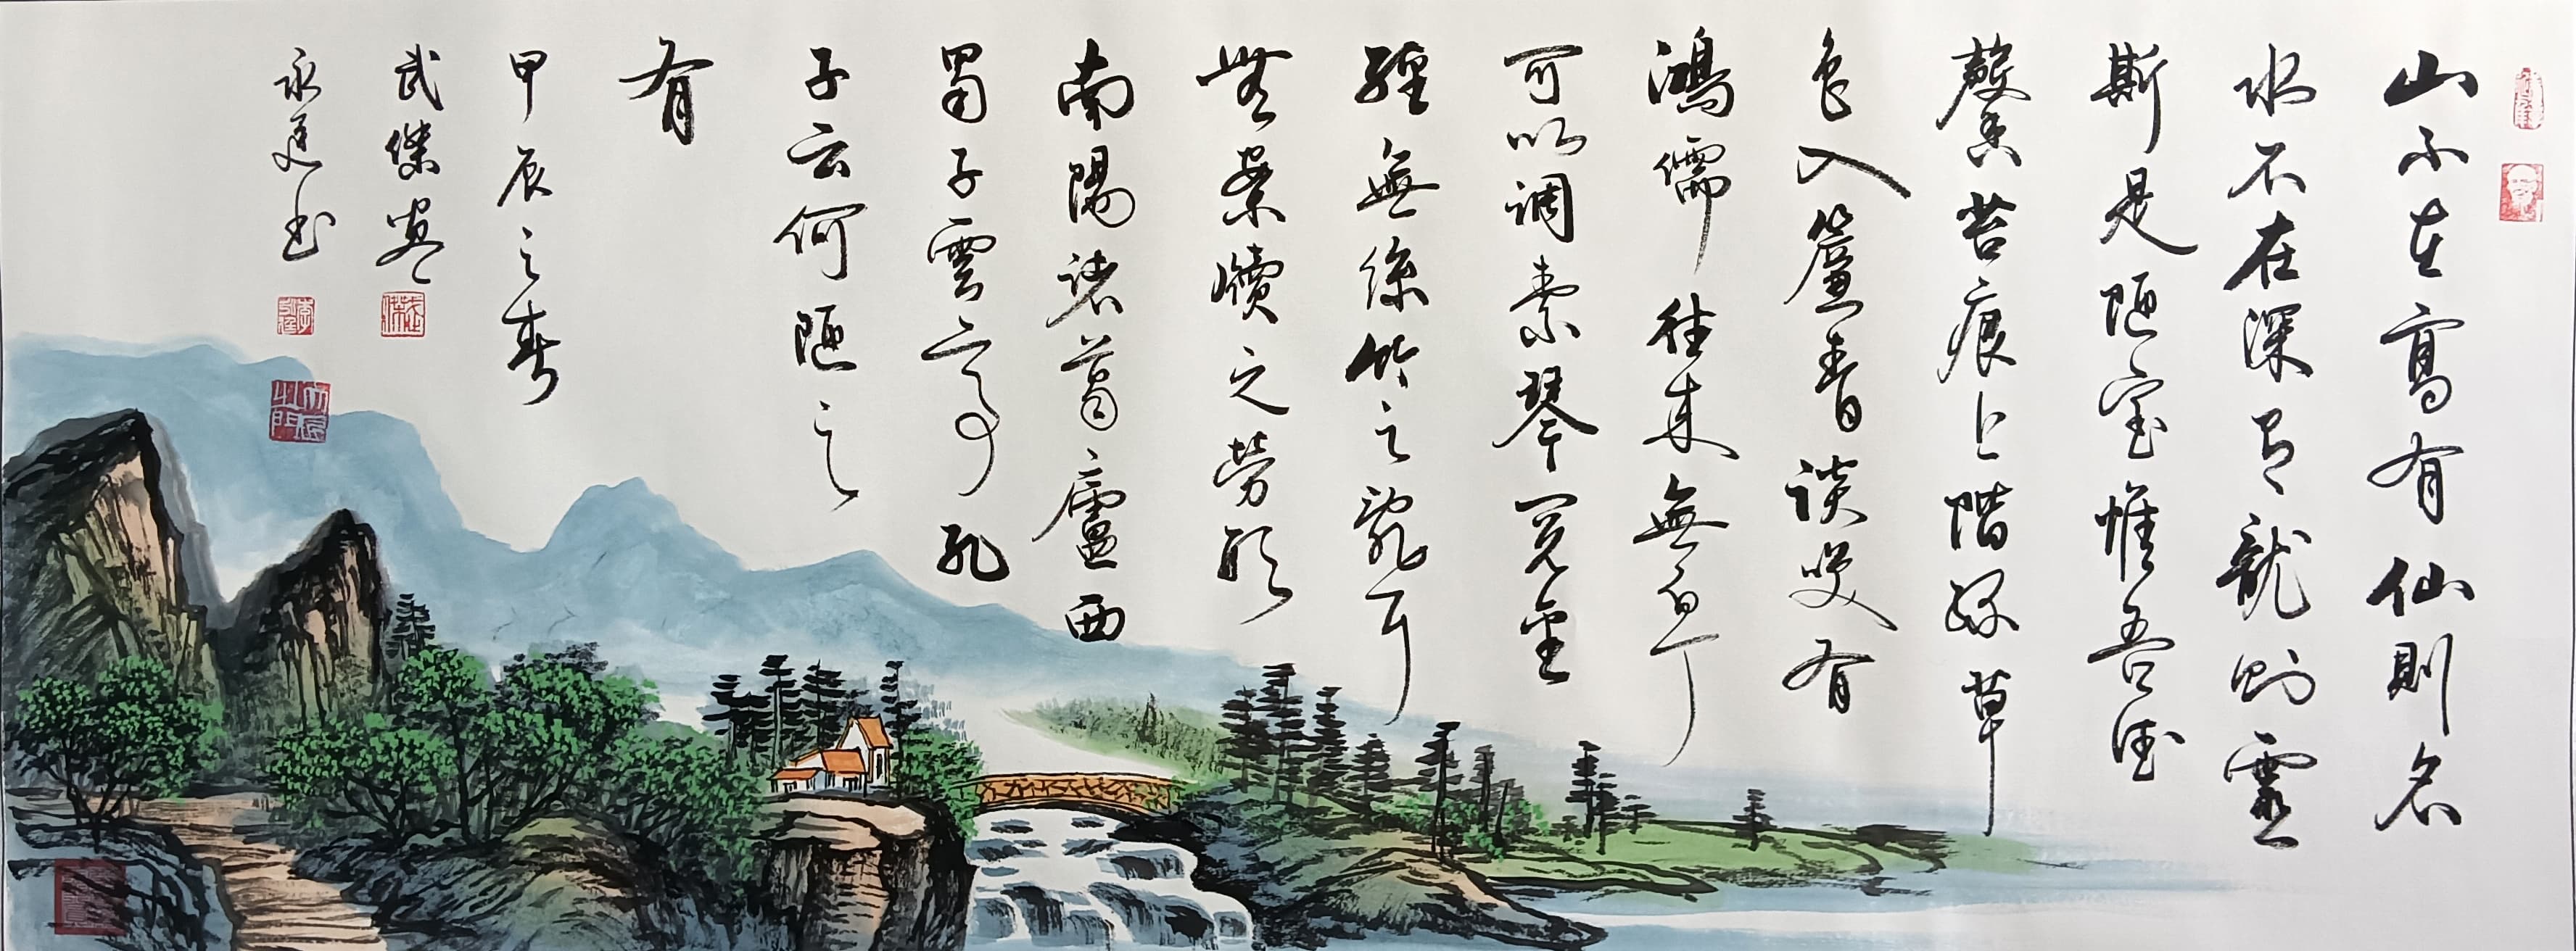 山不在高有仙則名
水不在深有龍則靈
斯是陋室惟吾德
馨苔痕上階緑草
色入簾青談笑有
鴻儒往来無白丁
可以調素琴閲金
經無絲竹之亂耳
無案牘之勞形
南陽諸葛廬西
蜀子雲亭孔
子云何陋之
有
甲辰之春
武傑畫
永進书